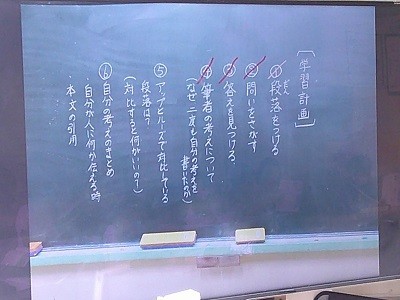 ［学習計画］
① 段落をつける
だんらく
② 問いをさがす
③ 答えを見つける
④ 筆者の考えについて
（なぜ二度も自分の考えを
書いたのか）
⑤ アップとルーズで対比している
段落は？
（対比すると何がいいの？）
⑥ 自分の考えのまとめ
・自分が人に何か伝える時
・本文の引用